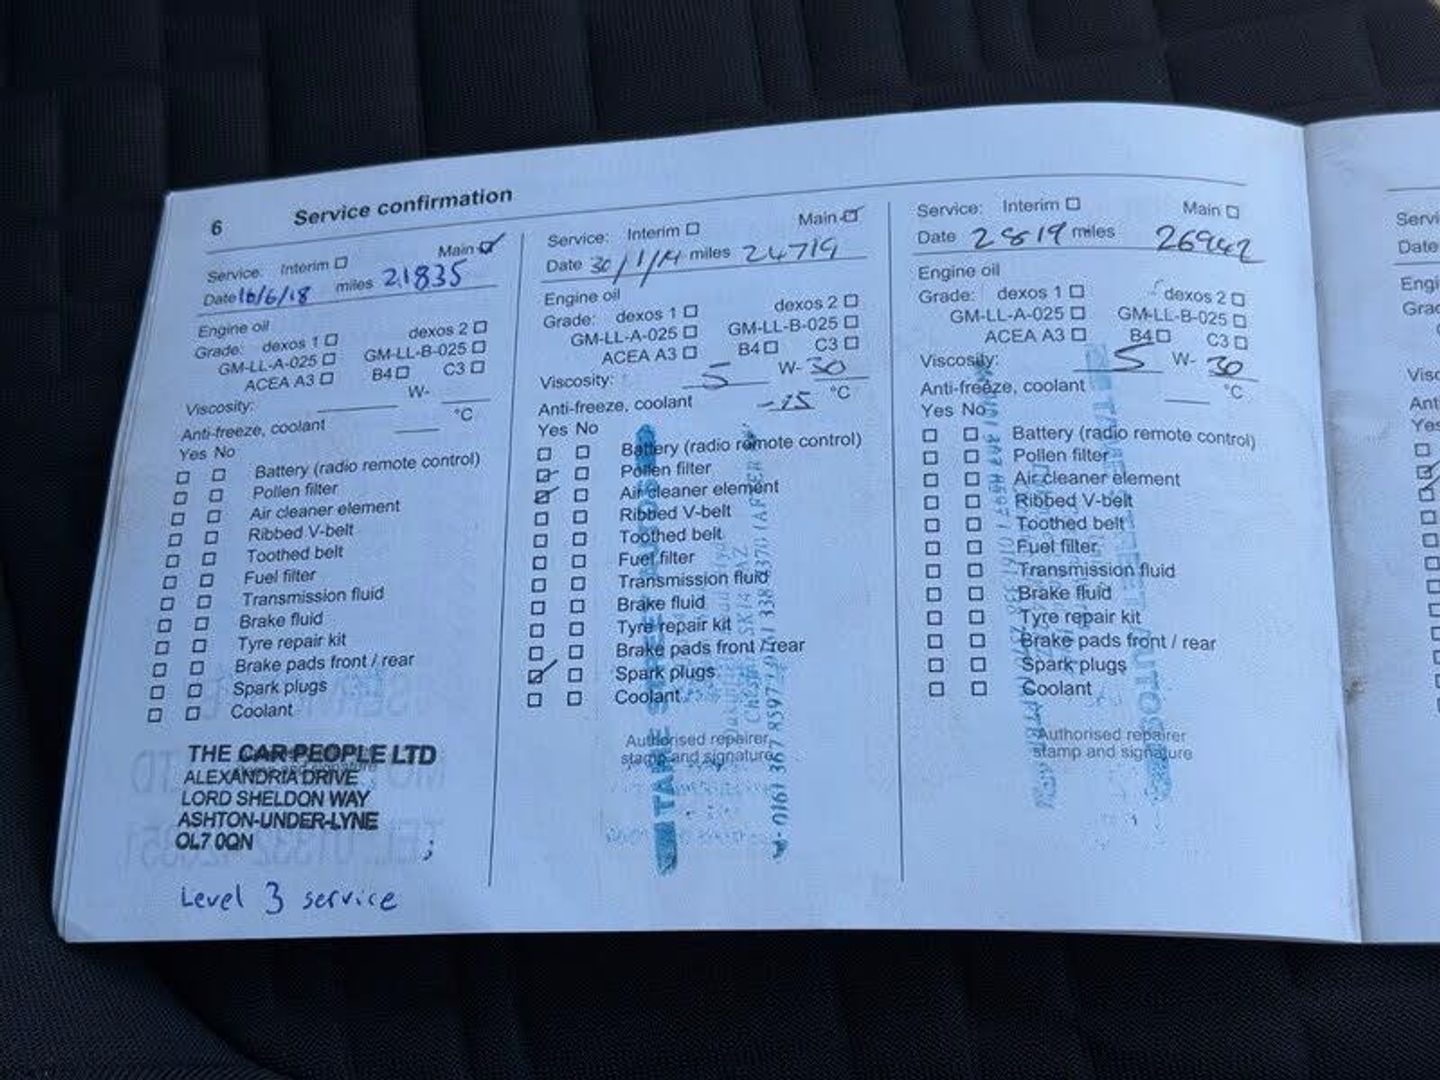 6 Service confirmation
Service: Interim Main
Date 16/6/18 miles 21835
Engine oil
Grade: dexos 1 dexos 2
GM-LL-A-025 GM-LL-B-025
ACEA A3 B4 C3
Viscosity: W-
Anti-freeze, coolant °C
Yes No
Battery (radio remote control)
Pollen filter
Air cleaner element
Ribbed V-belt
Toothed belt
Fuel filter
Transmission fluid
Brake fluid
Tyre repair kit
Brake pads front / rear
Spark plugs
Coolant
THE CAR PEOPLE LTD
ALEXANDRIA DRIVE
LORD SHELDON WAY
ASHTON-UNDER-LYNE
OL7 0QN
Level 3 service
Service: Interim Main
Date 30/1/19 miles 24719
Engine oil
Grade: dexos 1 dexos 2
GM-LL-A-025 GM-LL-B-025
ACEA A3 B4 C3
Viscosity: 5 W- 30
Anti-freeze, coolant °C
Yes No
Battery (radio remote control)
Pollen filter
Air cleaner element
Ribbed V-belt
Toothed belt
Fuel filter
Transmission fluid
Brake fluid
Tyre repair kit
Brake pads front / rear
Spark plugs
Coolant
Authorised repairer
stamp and signature
Service: Interim Main
Date miles 26942
Engine oil
Grade: dexos 1 dexos 2
GM-LL-A-025 GM-LL-B-025
ACEA A3 B4 C3
Viscosity: 5 W- 30
Anti-freeze, coolant °C
Yes No
Battery (radio remote control)
Pollen filter
Air cleaner element
Ribbed V-belt
Toothed belt
Fuel filter
Transmission fluid
Brake fluid
Tyre repair kit
Brake pads front / rear
Spark plugs
Coolant
Authorised repairer
stamp and signature